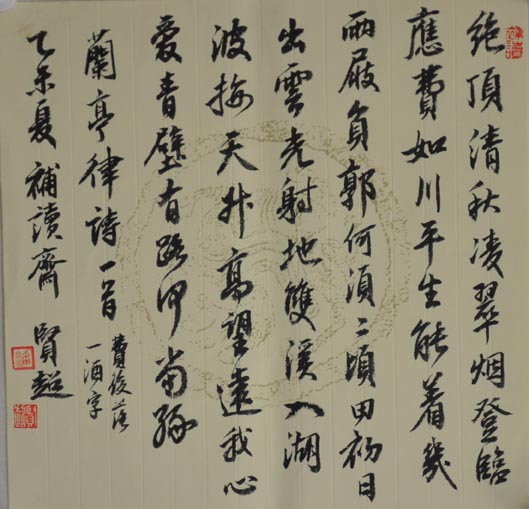 绝頂清秋凌翠烟登臨
應費如川平生能着幾
兩屐負郭何湏二頃田初日
出雲光射地雙溪入湖
波接天升高望遠我心
愛青壁有路何當緣
蘭亭律詩一首
費後落
一酒字
乙未夏補讀齋 賢超